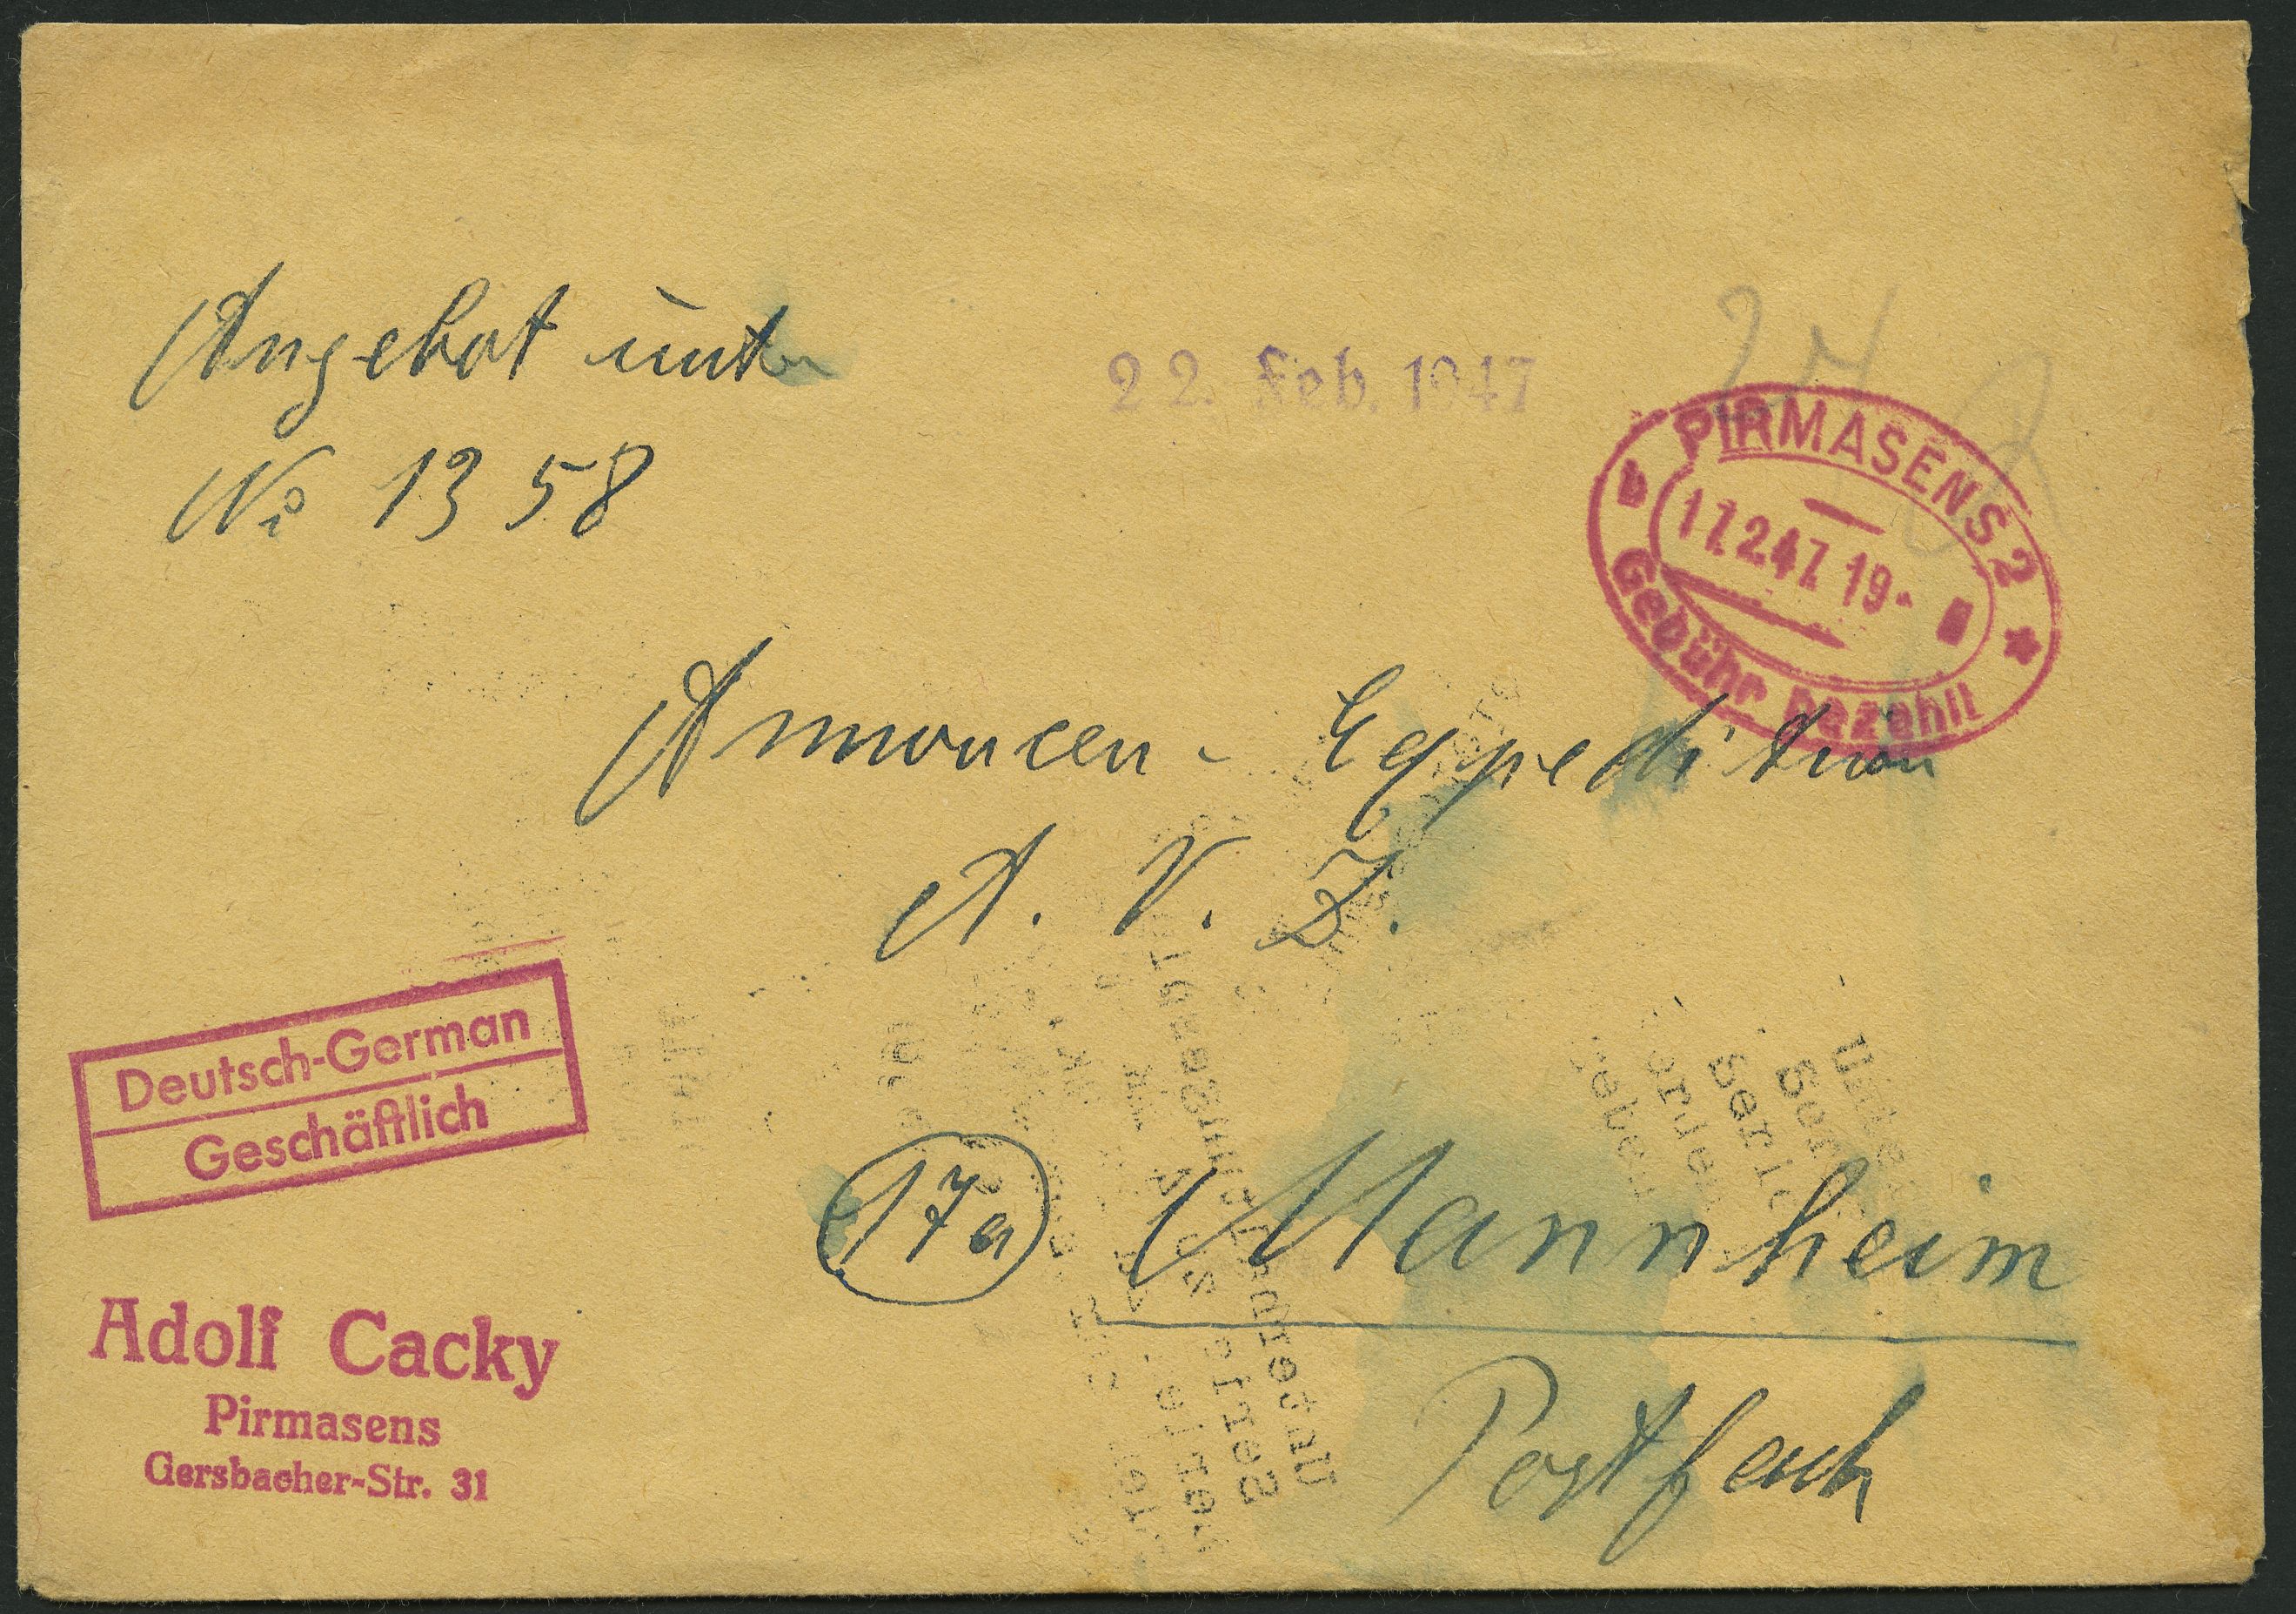 Angebot unter
No 1358
22. Feb. 1947
24
PIRMASENS 2
b
17.2.47.19-
Gebühr bezahlt
Annoncen-Expedition
A. V. Z.
Deutsch-German
Geschäftlich
17a Mannheim
Postfach
Adolf Cacky
Pirmasens
Gersbacher-Str. 31